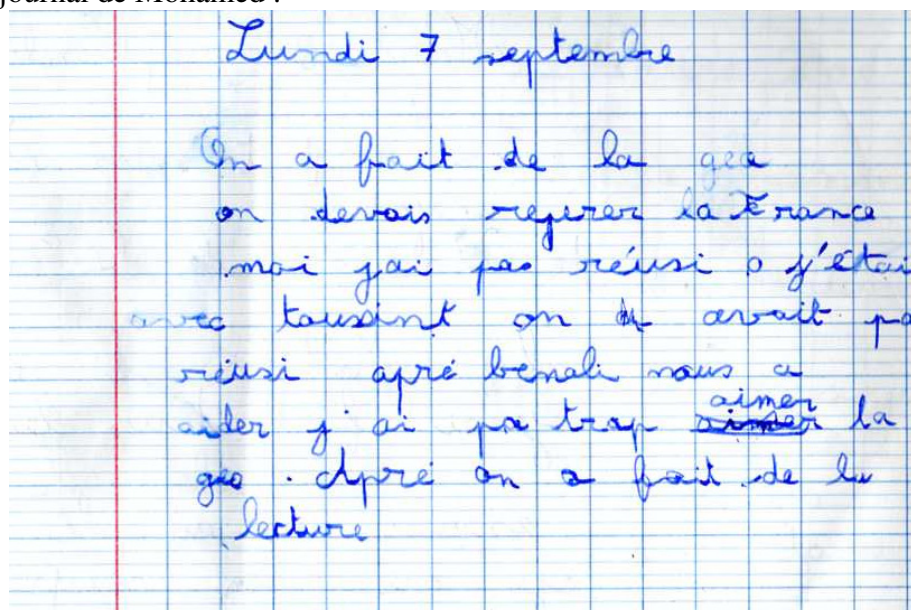 journal de Mohamed :
Lundi 7 septembre
On a fait de la geo
on devais reperer la France
moi jai pas réusi o j'étai
avec tousint on avait pa
réusi apré benali nous a
aider j'ai pa trop aimer la
geo . Apré on a fait de la
lecture